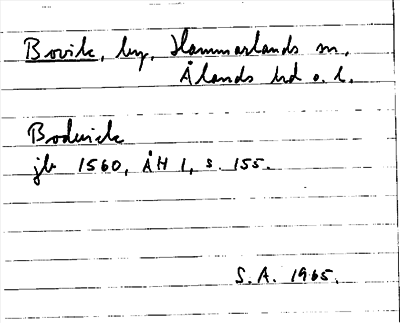 Bovik, by, Hammarlands sn,
Ålands hd o. l.
Bodwick
jb 1560, ÅH 1, s. 155.
S. A. 1965.